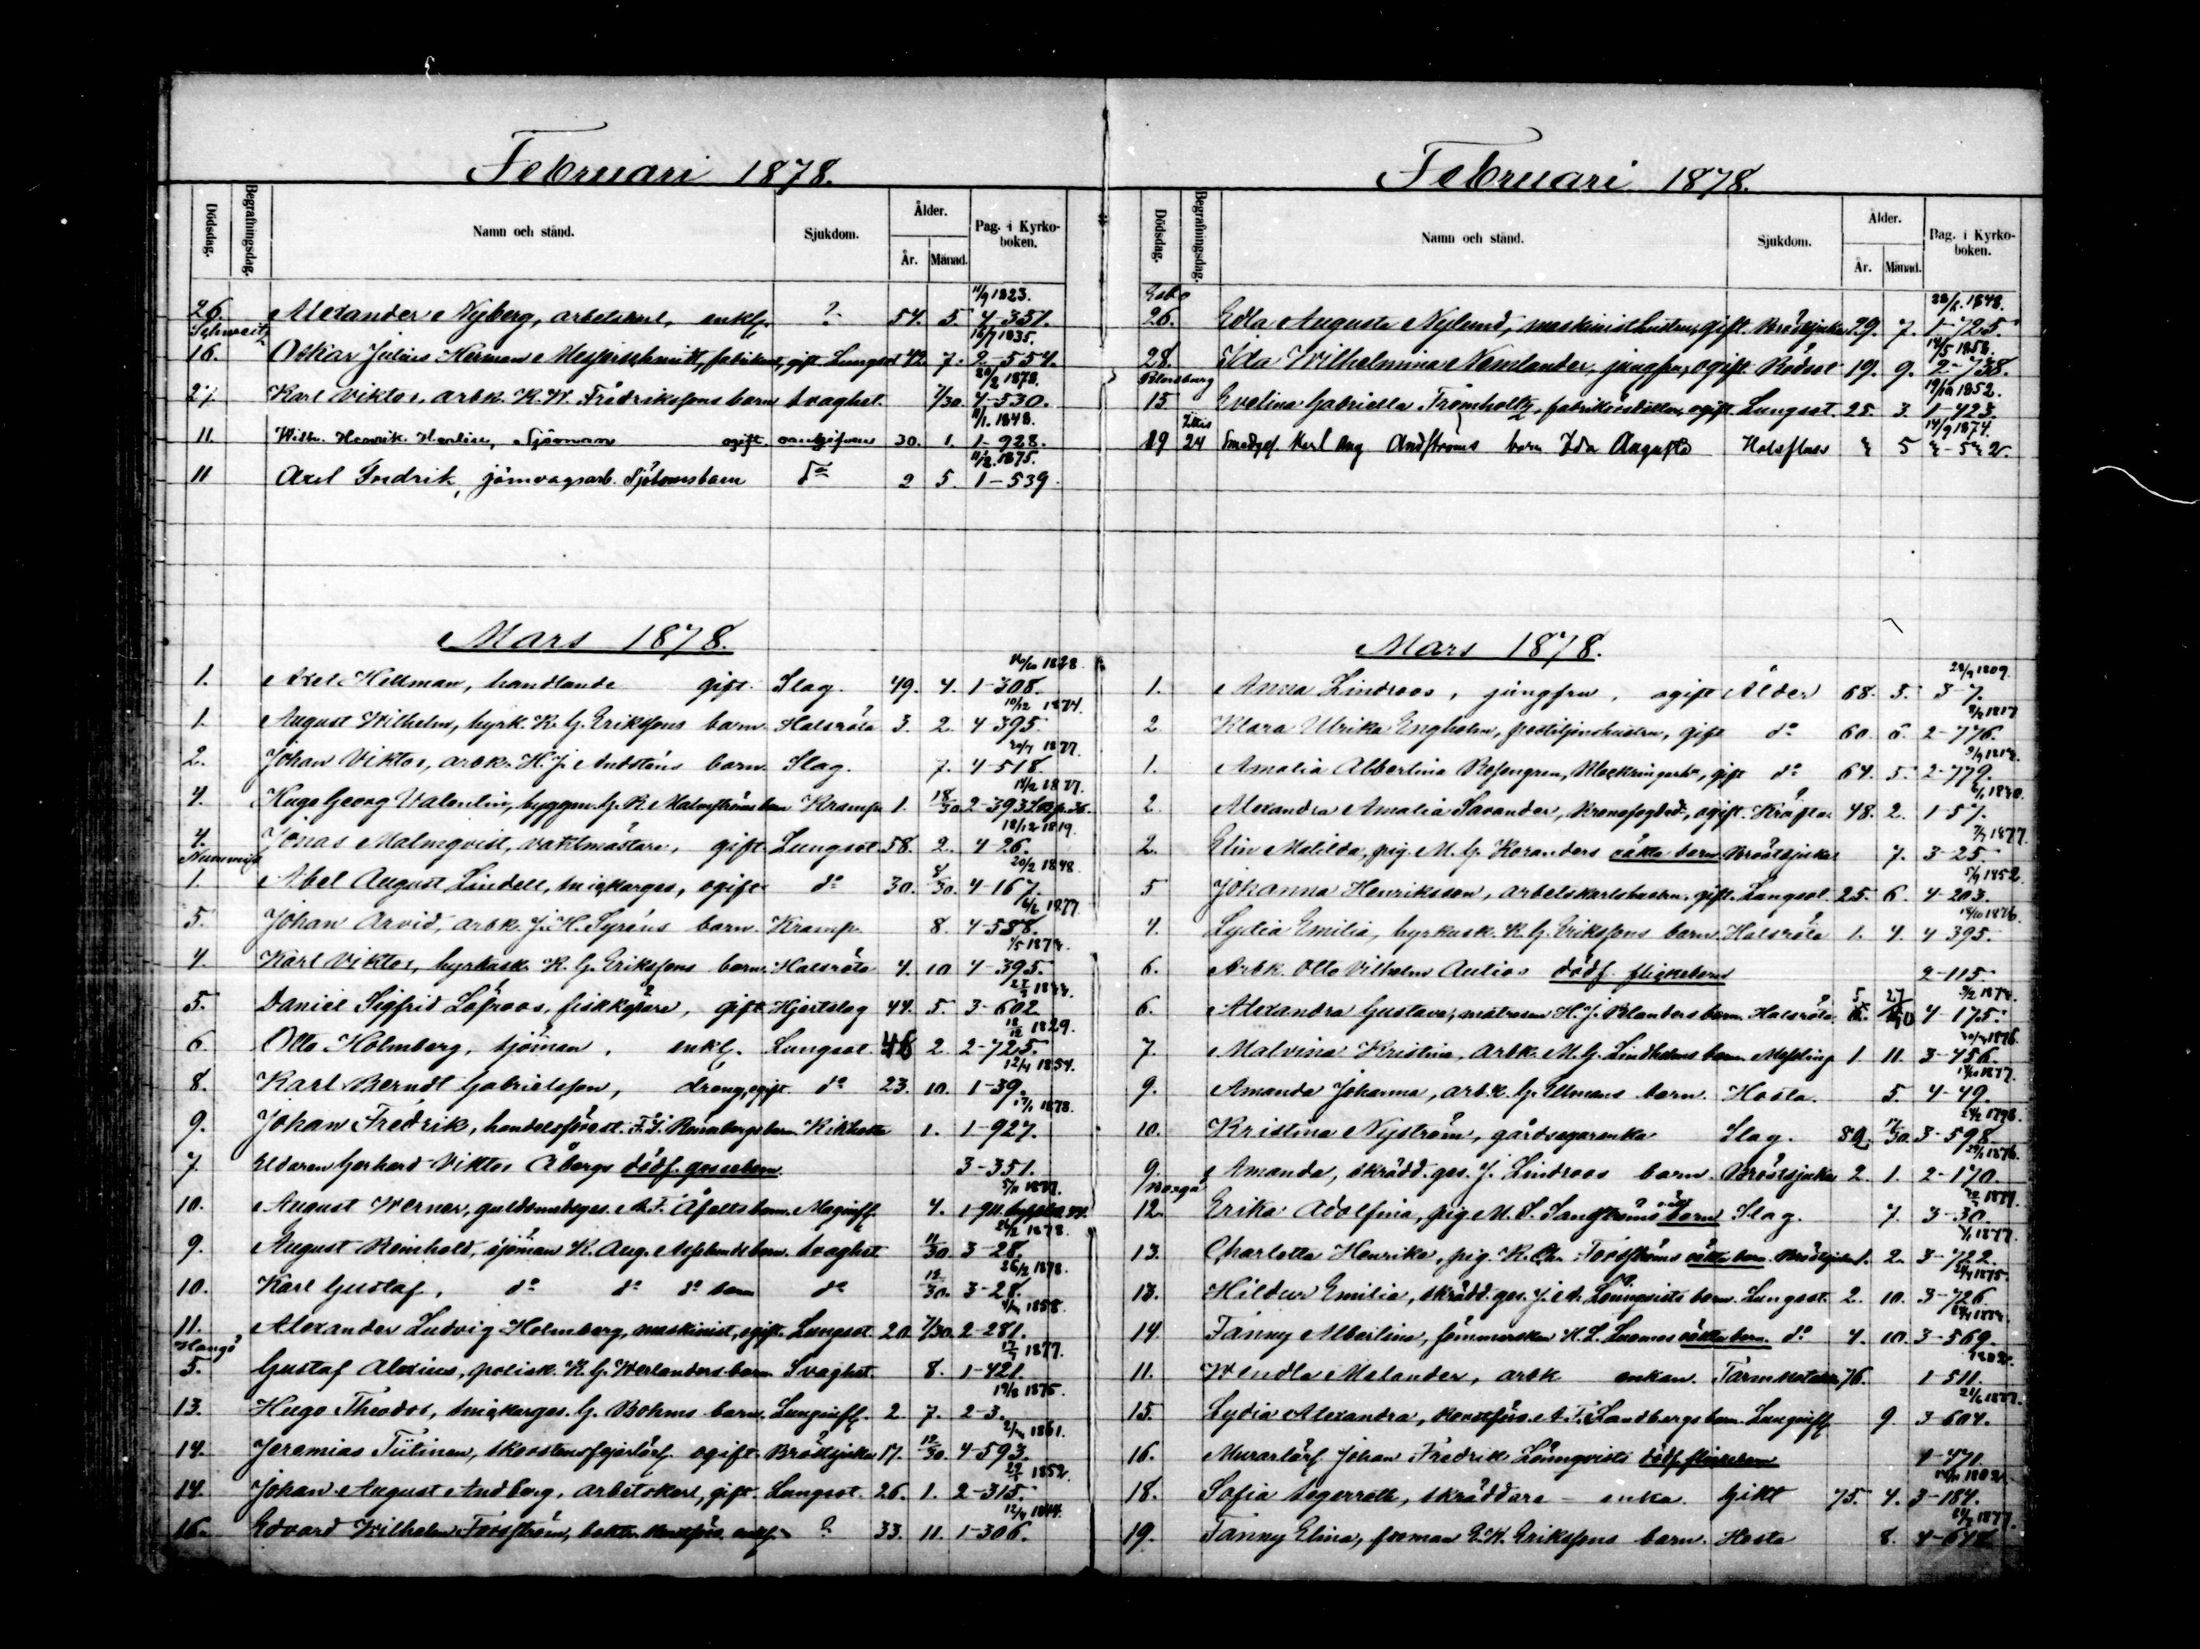 Februari 1878.
Dödsdag. Begrafningsdag. Namn och stånd. Sjukdom. Ålder. År. Månad. Pag. i Kyrkoboken.
11/9 1823.
26. Alexander Nyberg, arbetskarl, enkl. ? 54. 5. 4-351.
Schweitz 16/7 1835.
16. Oskar Julius Herman Messerschmitt, fabrikant, gift. Lungsot 42. 7. 2-554.
20/2 1878.
27. Karl Viktor, arbk. K. W. Fredrikssons barn Svaghet. 7/30. 4-530.
11/1. 1848.
11. Wilh. Henrik Herlin, Sjöman ogift. oangifven 30. 1. 1-928.
11/2. 1875.
11 Axel Fredrik, järnvägsarb. Sjöbomsbarn do 2 5. 1-539.
Mars 1878.
10/10 1828.
1. Axel Hellman, handlande gift. Slag. 49. 4. 1-308.
10/12 1874.
1. August Wilhelm, hyrk. K. G. Erikssons barn. Halsröta 3. 2. 4-395.
20/7 1877.
2. Johan Viktor, arbk. H. J. Andsténs barn. Slag. 7. 4-518.
14/2 1877.
4. Hugo Georg Valentin, byggm. G. R. Malmströms barn Kramp. 1. 18/30 2-393
18/12 1819.
4. Jonas Malmqvist, vaktmästare, gift Lungsot 58. 2. 4-26.
Nummijä 20/2 1848.
1. Abel August Lindell, snickarges, ogift do 30. 8/30. 4-167.
6/6 1877.
5. Johan Arvid, arbk. J. H. Syréns barn. Kramp. 8. 4-588.
1/5 1873.
4. Karl Viktor, hyrkusk. K. G. Erikssons barn. Halsröta 4. 10 4-395.
5. Daniel Sigfrid Löfroos, fiskköpare, gift Hjertslag 44. 5. 3-602.
18/12 1829.
6. Otto Holmberg, sjöman, enkl. Lungsot 48 2. 2-725.
12/4 1854.
8. Karl Berndt Gabrielsson, dreng, ogift. do 23. 10. 1-39.
17/1 1878.
9. Johan Fredrik, handelsförest. F. I. Rönnbergs barn Kikhosta 1. 1-927.
7. Eldaren Gerhard Viktor Åbergs dödf. gossebarn. 3-351.
5/11 1877.
10. August Werner, guldsmedsges. A. F. Åfelts barn. Maginfl. 4. 1-911.
26/2 1878.
9. August Reinhold, sjöman K. Aug. Asplunds barn. Svaghet 11/30 3-28.
26/2 1878.
10. Karl Gustaf, do do do barn do 12/30. 3-28.
4/3 1858.
11. Alexander Ludvig Holmberg, maskinist, ogift. Lungsot 20. 7/30. 2-281.
Hangö 12/7 1877.
5. Gustaf Alexius, polisk. K. G. Werlanders barn Svaghet. 8. 1-421.
19/8 1875.
13. Hugo Theodor, snickarges. G. Bohms barn. Lunginfl. 2. 7. 2-3.
2/3 1861.
14. Jeremias Tiitinen, skorstensfejarlärl. ogift. Bröstsjuka 17. 12/30. 4-593.
29/1 1852.
14. Johan August Andberg, arbetskarl, gift. Lungsot. 26. 1. 2-315
12/4 1844.
16. Edvard Wilhelm Forsström, enkl. ? 33. 11. 1-306.
Februari 1878.
Dödsdag. Begrafningsdag. Namn och stånd. Sjukdom. Ålder. År. Månad. Pag. i Kyrkoboken.
Esbo 22/7. 1848.
26. Edla Augusta Nylund, maskinisthustru, gift. Bröstsjuka 29. 7. 1-725.
14/5 1858.
28. Ida Wilhelmina Nemlander, jungfru, ogift Rödsot 19. 9. 2-738.
Petersburg 19/10 1852.
15. Evelina Gabriella Tromholtz, fabriksdotter, ogift Lungsot. 25. 3. 1-423.
Ittis 14/9 1874.
19 24 Smedges. Karl Aug Andströms barn Ida Augusta Halsfluss 5
Mars 1878.
28/9 1809.
1. Anna Lindroos, jungfru, ogift Ålder 68. 5. 3-7.
1817
2. Klara Ulrika Engholm, postiljonshustru, gift do 60. 6. 2-776.
1. Amalia Albertina Rosengren, klockringarhu, gift do 64. 5. 2-779.
6/1 1830.
2. Alexandra Amalia Savander, kronofogded., ogift. Kräfta 48. 2. 1-57.
7/7 1877.
2. Elin Matilda, pig. M. G. Koranders oäkta barn Bröstsjuka 7. 3-25.
5/9 1852.
5 Johanna Henriksson, arbetskarlshustru, gift. Lungsot. 25. 6. 4-203.
14/10 1876.
4. Lydia Emilia, hyrkusk. K. G. Erikssons barn. Halsröta 1. 4. 4-395.
6. Arbk. Otto Vilhelm Autios dödf. flickebarn 2-115
9/2 1873.
6. Alexandra Gustava, matrosen H. J. Blanders barn. Halsröta 5 27/30 4-175.
20/3 1876.
7. Malvina Kristina, arbk. M. G. Lindholms barn. Messling 1. 11. 3-456.
14/10 1877.
9. Amanda Johanna, arbk. G. Ullmans barn. Hosta. 5. 4-49.
24/2 1798.
10. Kristina Nyström, gårdsegarenka Slag. 80. 17/30. 3-598.
29/1 1876.
9. Amanda, skrädd. ges. J. Lindroos barn. Bröstsjuka 2. 1. 2-170.
Borgå 1877.
12. Erika Adolfina, pig. M. S. Sandströms oäkt barn Slag. 7. 3-30.
1877.
13. Charlotta Henrika, pig. K. Ch. Forsströms oäkta barn. Bröstsjuka 1. 2. 3-722.
24/4 1875.
13. Hildur Emilia, skrädd. ges. J. A. Lönnqvists barn. Lungsot. 2. 10. 3-726.
14. Fanny Albertina, sömmerskan H. L. Luomas oäkta barn. do 4. 10. 3-569.
1802.
11. Wendla Melander, arbk enkan. 76. 1-511.
21/6 1877.
15. Lydia Alexandra, konstförv. A. F. Sandbergs barn. Lunginfl. 9. 3-604.
16. Murarlärl. Johan Fredrik Lönnqvists dödf. flickebarn 4-471.
14/11 1802.
18. Sofia Segerroth, skräddare - enka. Gikt 75. 4. 3-184.
1877.
19. Fanny Elina, forman E. K. Erikssons barn. Hosta 8. 4-642